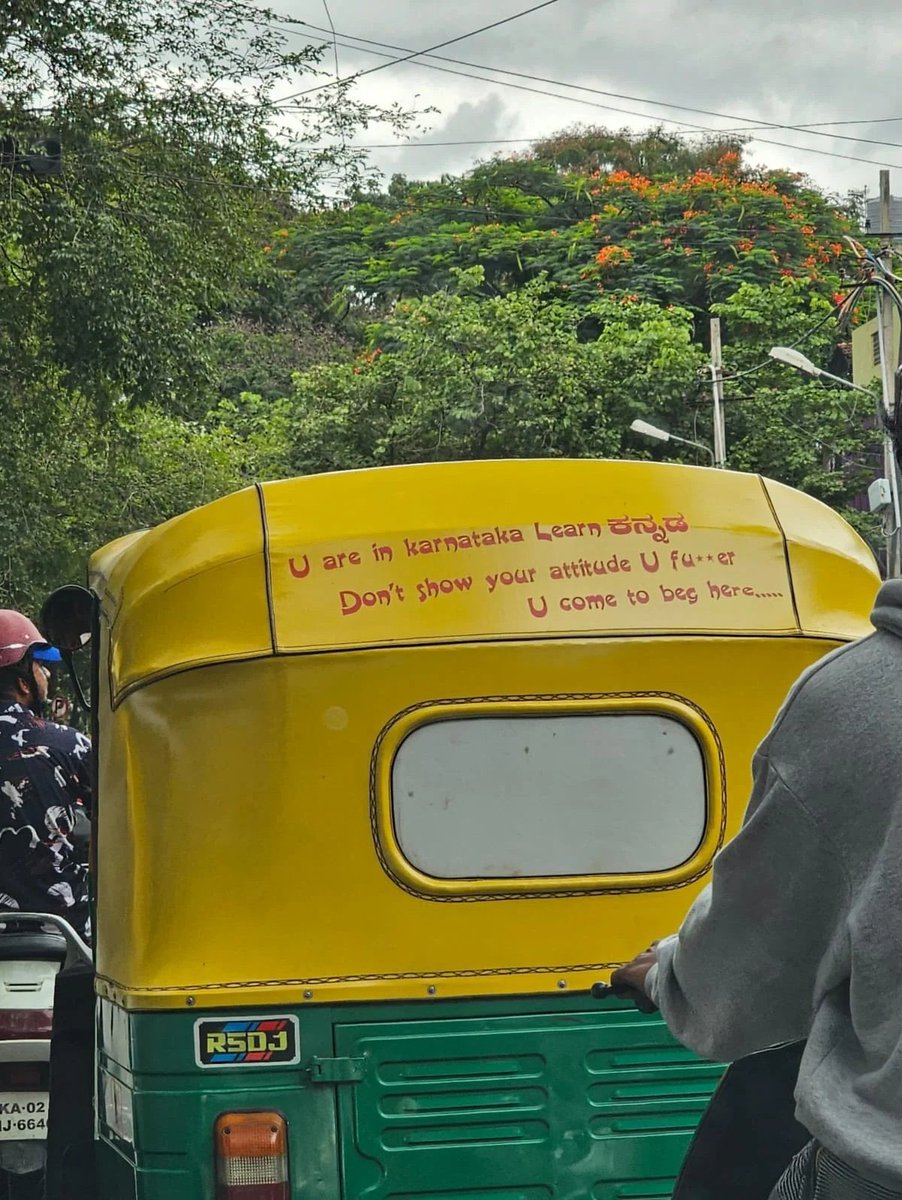 U are in karnataka Learn ಕನ್ನಡ
Don't show your attitude U fu**er
U come to beg here.....
RSDJ
KA·02